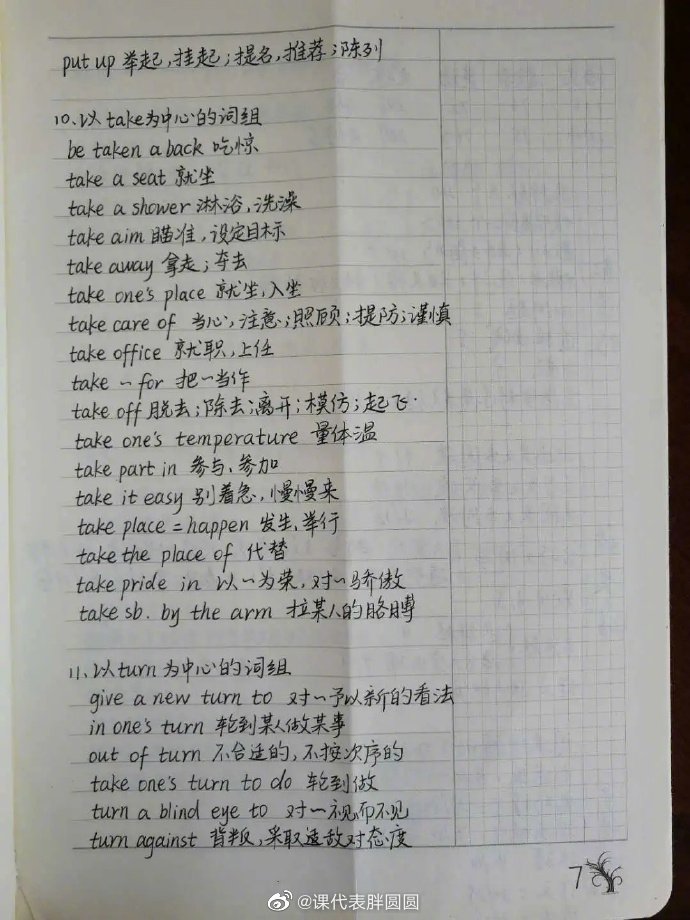 put up 举起,挂起;提名,推荐;陈列
10.以take为中心的词组
be taken aback 吃惊
take a seat 就坐
take a shower 淋浴,洗澡
take aim 瞄准,设定目标
take away 拿走;夺去
take one's place 就坐,入坐
take care of 当心,注意;照顾;提防;谨慎
take office 就职,上任
take ~ for 把~当作
take off 脱去;除去;离开;模仿;起飞.
take one's temperature 量体温
take part in 参与、参加
take it easy 别着急,慢慢来
take place = happen 发生,举行
take the place of 代替
take pride in 以~为荣,对~骄傲
take sb. by the arm 拉某人的胳膊
11.以turn为中心的词组
give a new turn to 对~予以新的看法
in one's turn 轮到某人做某事
out of turn 不合适的,不按次序的
take one's turn to do 轮到做
turn a blind eye to 对~视而不见
turn against 背叛,采取敌对态度
7
@课代表胖圆圆